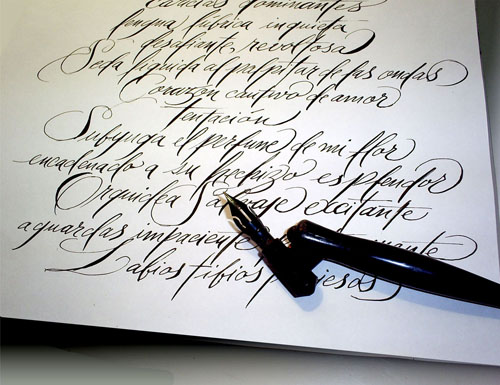 caricias dominantes
lengua lúbrica inquieta
desafiante, revoltosa
Seda líquida al palpitar de las ondas
Corazón cautivo de amor
tentación
Subyuga el perfume de mi flor
encadenado a su hechizo esplendor
Orquídea Salvaje excitante
aguardas impaciente
Labios tibios